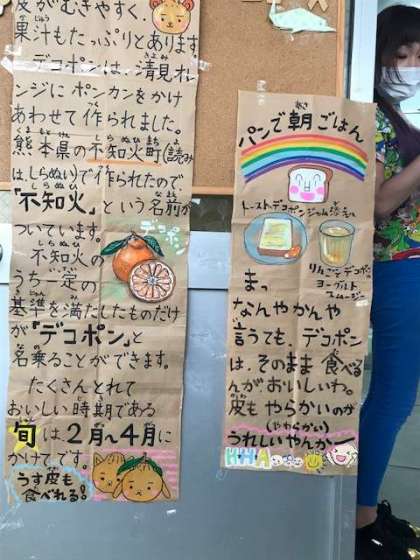 皮がむきやすく、
果汁もたっぷりとあります
デコポンは、清見オレ
ンジにポンカンをかけ
あわせて作られました。
熊本県の不知火町(読み
は、しらぬい)で作られたので
「不知火」という名前が
ついています。
デコポン
不知火の
うち一定の
基準を満たしたものだけ
が『デコポン』と
名乗ることができます。
たくさんとれて
おいしい時期である
旬は2月〜4月に
かけてです。
うす皮も
食べれる!
パンで朝ごはん
トーストデコポンジャム
りんごとデコポンの
ヨーグルト
スムージー
まっ
なんやかんや
言うても、デコポン
は、そのまま食べる
んがおいしいわ。
皮もやらかいのが
(やわらかい)
うれしいやんかー